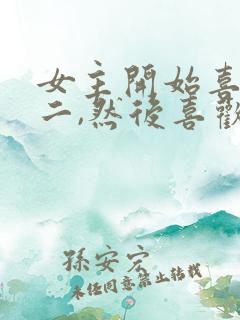 女主開始喜
二,然後喜歡
孫安宏
未经同意禁止转载